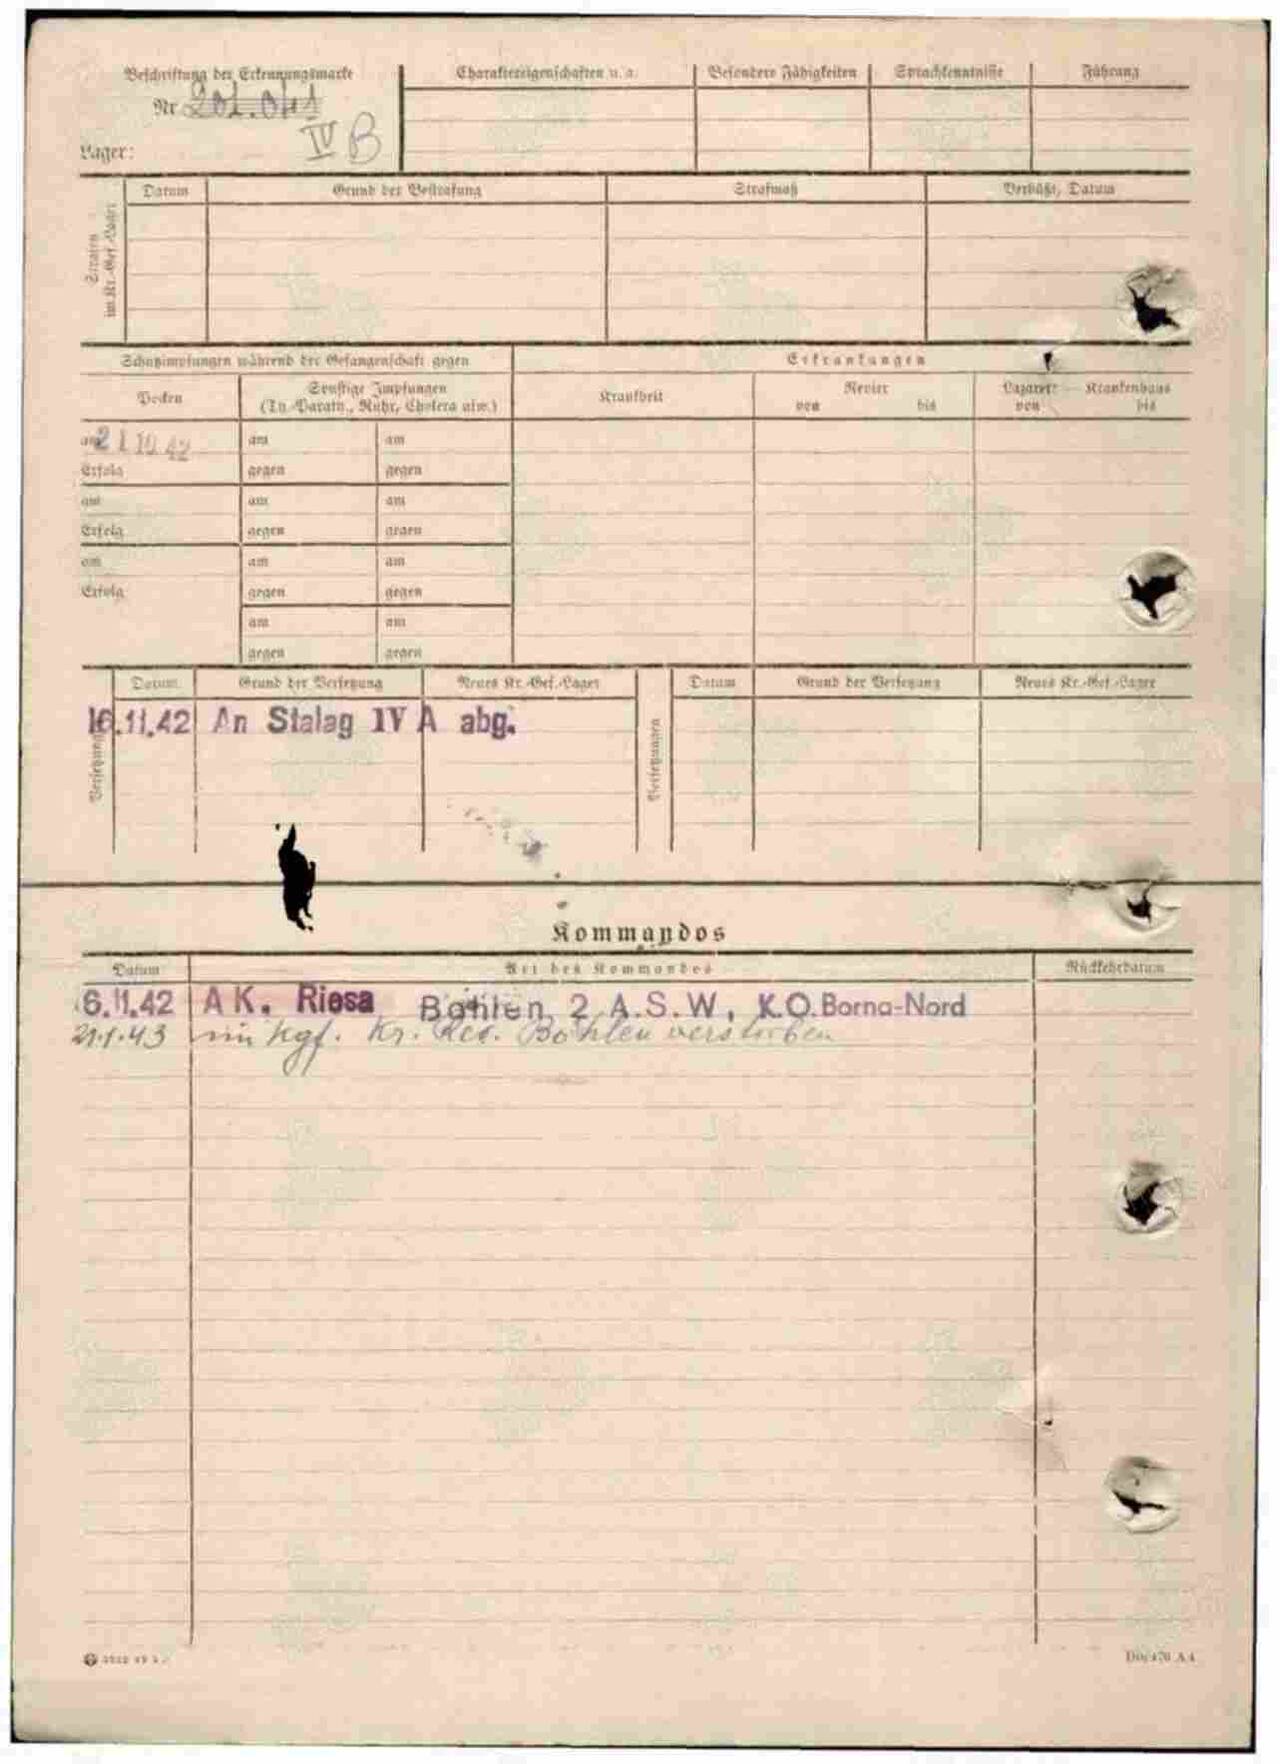 Beschriftung der Erkennungsmarke
Nr. 201.041
IV B
Lager:
Charaktereigenschaften u. a.
Besondere Fähigkeiten
Sprachkenntnisse
Führung
Strafen im Kr.-Gef.-Lager
Datum
Grund der Bestrafung
Strafmaß
Verbüßt, Datum
Schutzimpfungen während der Gefangenschaft gegen
Erkrankungen
Pocken
Sonstige Impfungen
(Ty.-Paraty., Ruhr, Cholera usw.)
Krankheit
Revier
von bis
Lazarett — Krankenhaus
von bis
am 21 10 42
am am
Erfolg
gegen gegen
am
am am
Erfolg
gegen gegen
am
am am
Erfolg
gegen gegen
am am
gegen gegen
Versetzungen
Datum
Grund der Versetzung
Neues Kr.-Gef.-Lager
Versetzungen
Datum
Grund der Versetzung
Neues Kr.-Gef.-Lager
16.11.42 An Stalag IV A abg.
Kommandos
Datum
Art des Kommandos
Rückkehrdatum
6.11.42 A K. Riesa Böhlen 2 A.S.W, K.O. Borna-Nord
21.1.43 im Kgf. Kr. Rev. Böhlen verstorben
Din 476 A 4